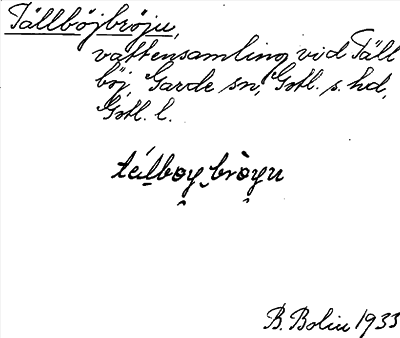 Tällböjbröju,
vattensamling vid Täll
böj, Garde sn, Gotl. s. hd,
Gotl. l.
tálboy bròyu
B. Bolin 1933